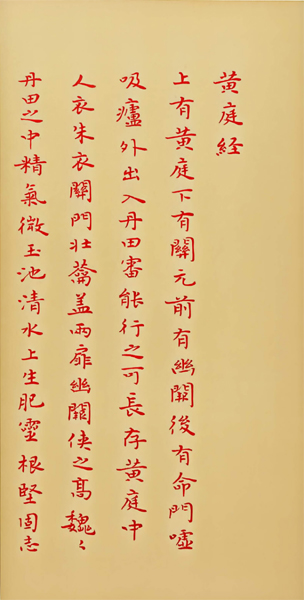 黄庭経
上有黄庭下有關元前有幽闕後有命門嘘
吸廬外出入丹田審能行之可長存黄庭中
人衣朱衣關門壯蘥盖兩扉幽闕侠之髙魏〻
丹田之中精氣微玉池清水上生肥靈根堅固志